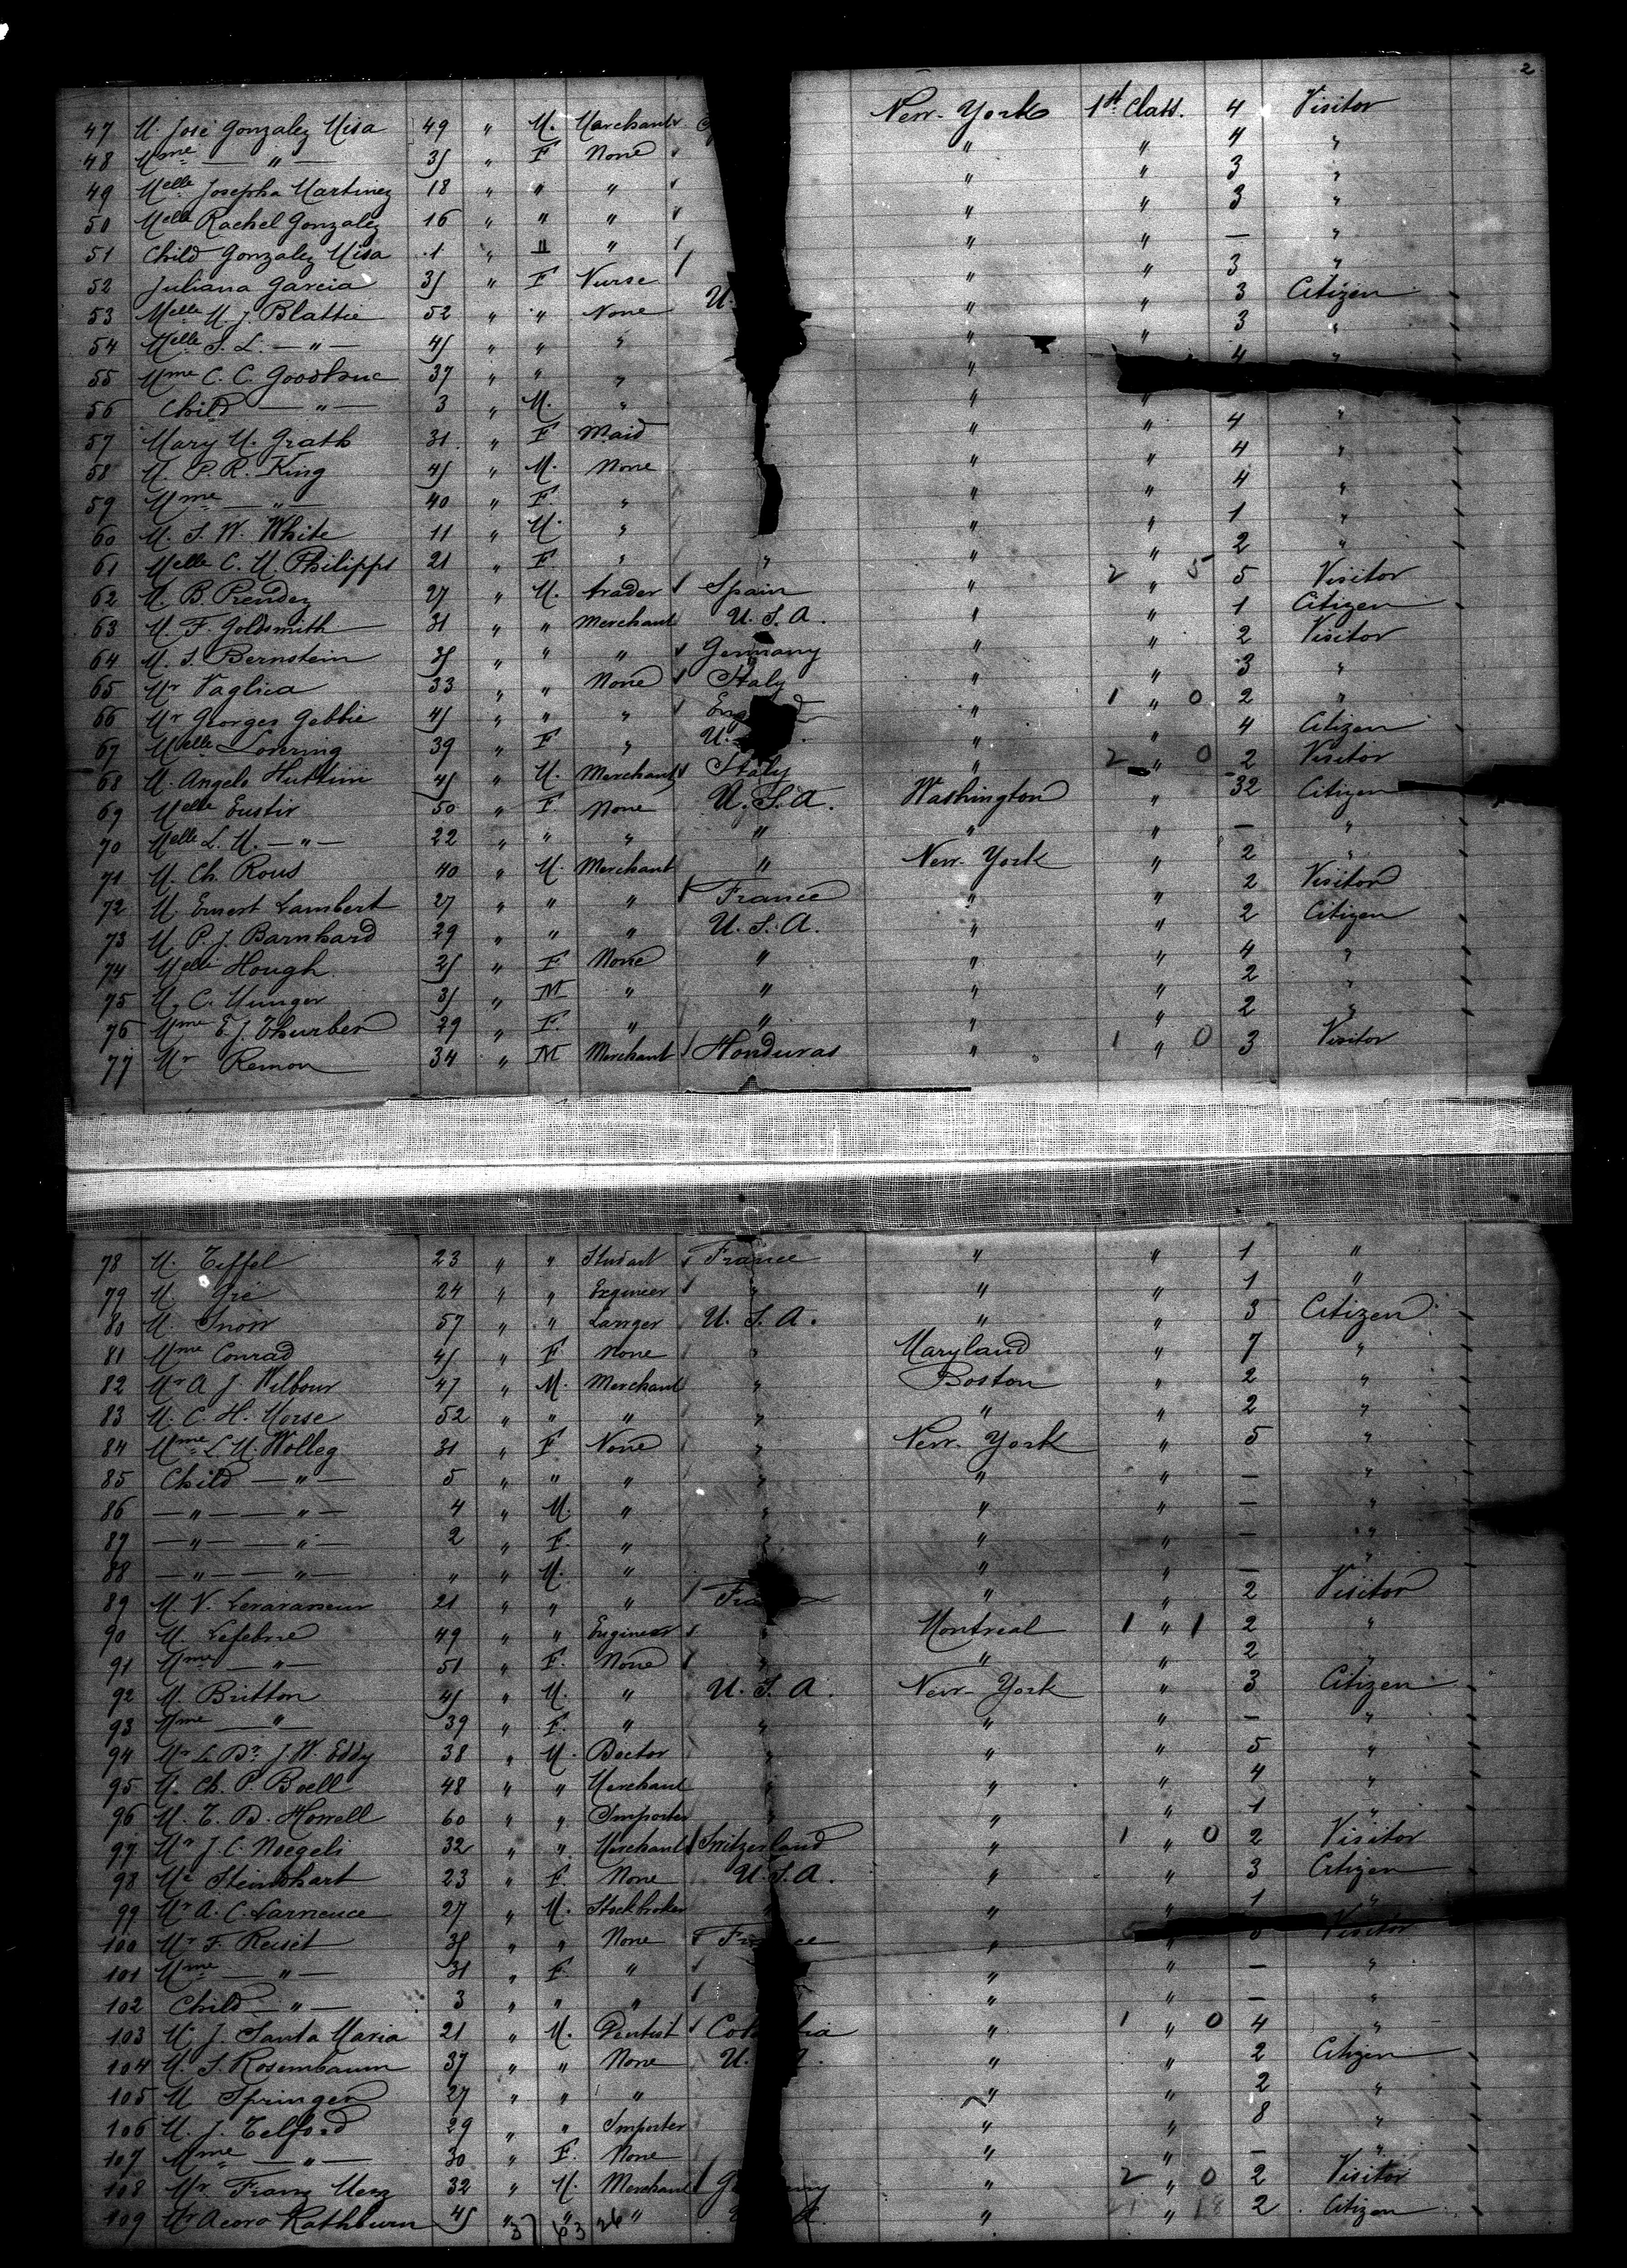 2
47 M. José Gonzalez Misa 49 " M. Marchant New-York 1st Class. 4 Visitor
48 Mme — " — 35 " F None " " 4 "
49 Melle Josepha Martinez 18 " " " " " 3 "
50 Melle Rachel Gonzalez 16 " " " " " 3 "
51 Child Gonzalez Misa 1 " " " " " — "
52 Juliana Garcia 35 " F Nurse " " 3 "
53 Melle M. J. Blattie 52 " " None U. " " 3 Citizen
54 Melle S. L. — " — 45 " " " " " 3 "
55 Mme C. C. 37 " " " " 4 "
56 Child — " — 3 " M. " " "
57 Mary M. Grath 31 " F Maid " " 4 "
58 M. P. R. King 45 " M. None " " 4 "
59 Mme — " — 40 " F. " " " 4 "
60 M. S. W. White 11 " M. " " " 1 "
61 Melle C. M. Philipps 21 " F. " " " " 2 "
62 M. B. Prendez 27 " M. trader Spain " 2 " 5 5 Visitor
63 M. F. Goldsmith 31 " " Merchant U. S. A. " " 1 Citizen
64 M. S. Bernstein 35 " " " Germany " " 2 Visitor
65 Mr Vaglica 33 " " None Italy " " 3 "
66 Mr Georges Gebbie 45 " " " Eng d " 1 " 0 2 "
67 Melle Lovering 39 " F " U. " " 4 Citizen
68 M. Angelo Huttini 45 " M. Merchant Italy " 2 " 0 2 Visitor
69 Melle Eustis 50 " F None U. S. A. Washington " 32 Citizen
70 Melle L. M. — " — 22 " " " " " " — "
71 M. Ch. Rous 40 " M. Merchant " New-York " 2 "
72 M Ernest Lambert 27 " " " France " " 2 Visitor
73 M P. J. Barnhard 29 " " " U. S. A. " " 2 Citizen
74 Melle Hough 25 " F None " " " 4 "
75 M. C. Munger 35 " M " " " " 2 "
76 Mme E. J. Thurber 29 " F. " " " " 2 "
77 Mr Remon 34 " M Merchant Honduras " 1 " 0 3 Visitor
78 M. Teffel 23 " " Studant France " " 1 "
79 M. Gie 24 " " Engineer " " " 1 "
80 M. Snow 57 " " Lawyer U. S. A. " " 3 Citizen
81 Mme Conrad 45 " F None " Maryland " 7 "
82 Mr A J. Wilbour 47 " M. Merchant " Boston " 2 "
83 M. C. H. Morse 52 " " " " " " 2 "
84 Mme L. M. Wolleg 31 " F None " New-York " 5 "
85 Child — " — 5 " " " " " " — "
86 — " — — " — 4 " M. " " " " — "
87 — " — — " — 2 " F. " " " " — "
88 — " — — " — " " M. " " " — "
89 M V. 21 " " " Fra " " 2 Visitor
90 M. Lefebvre 49 " " Engineer " Montreal 1 " 1 2 "
91 Mme — " — 51 " F. None " " " 2 "
92 M. Britton 45 " M. " U. S. A. New-York " 3 Citizen
93 Mme — " — 39 " F. " " " " — "
94 Mr L. Dr. J. W. Eddy 38 " M. Doctor " " " 5 "
95 M. Ch. P. Boell 48 " " Merchant " " " 4 "
96 M. T. B. Howell 60 " " Importer " " " 1 "
97 Mr J. C. Noegeli 32 " " Merchant Switzerland " 1 " 0 2 Visitor
98 Me Steinohart 23 " F. None U.S.A. " " 3 Citizen
99 Mr A. C. Larneuce 27 " M. Stockbroker " " " 1 "
100 Mr F. Reiset 35 " " None Fr ce " " Visitor
101 Mme — " — 31 " F. " " " — "
102 Child — " — 3 " " " " " — "
103 M. J. Santa Maria 21 " M. Dentist Co bia " 1 " 0 4 "
104 M. S. Rosembaum 37 " " None U. . " " 2 Citizen
105 M Springer 27 " " " " " 2 "
106 M. J. Telford 29 " " Importer " " 8 "
107 Mme — " — 30 " F. None " " — "
108 Mr. Franz Merz 32 " M. Merchant G ny " 2 " 0 2 Visitor
109 Mr Rathburn 45 " " " A. " " 2 Citizen
37 63 26